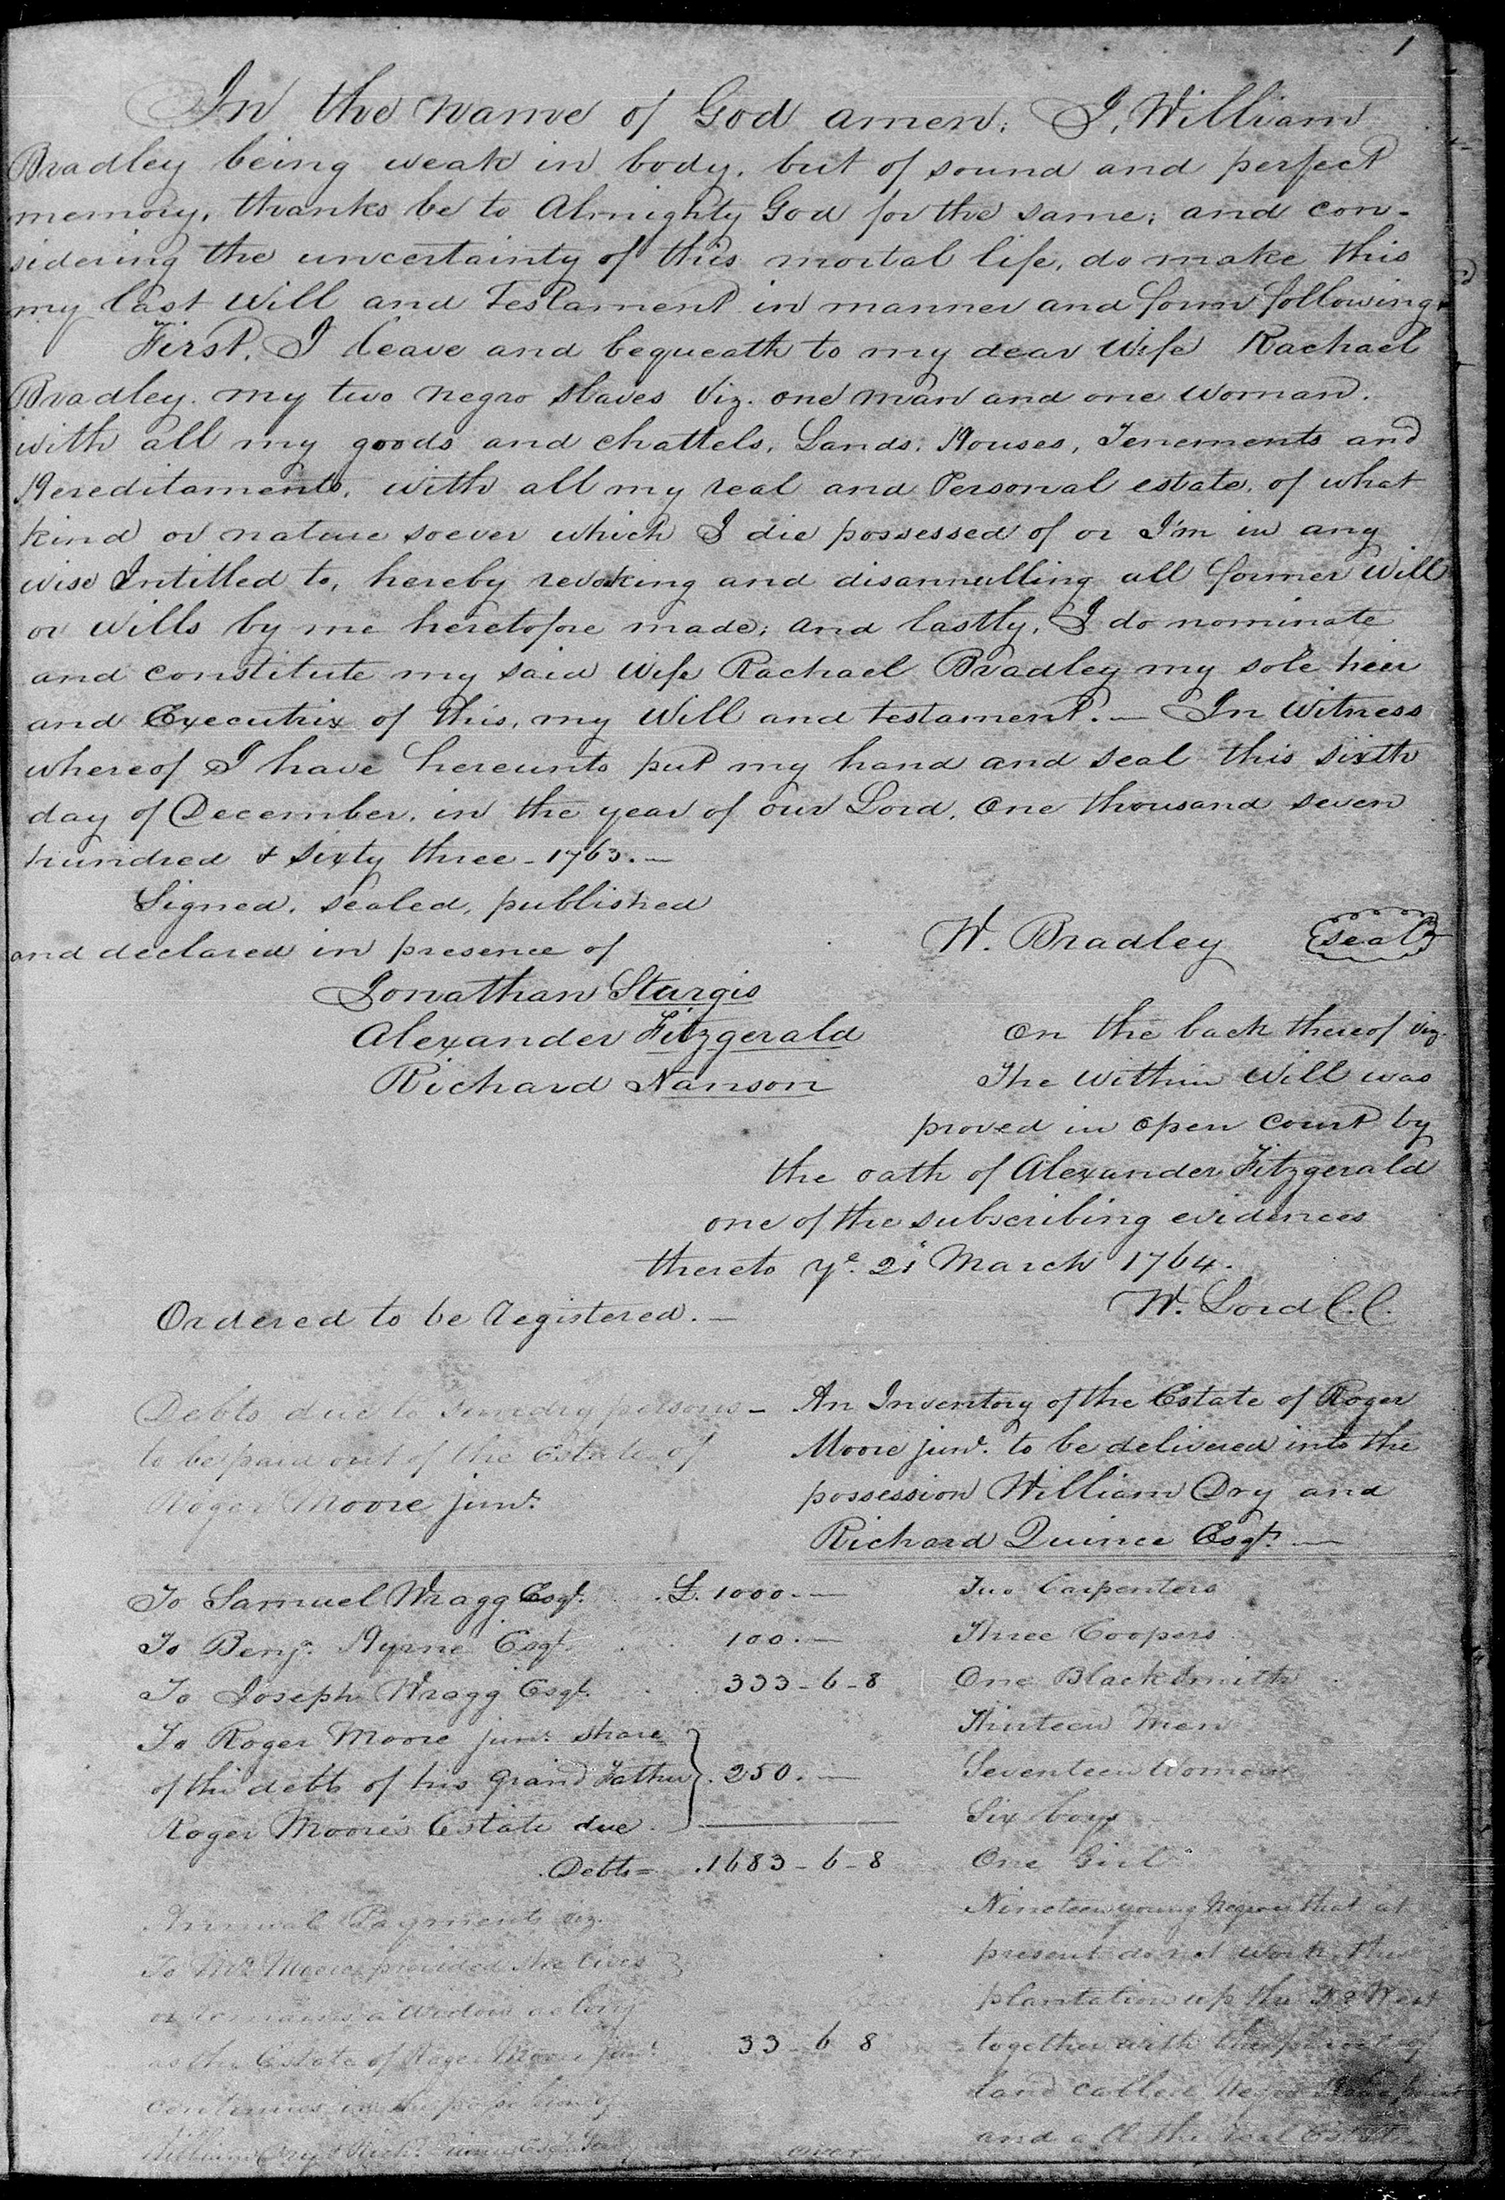 1
In the name of God amen; I, William
Bradley being weak in body, but of sound and perfect
memory, thanks be to Almighty God for the same; and con-
sidering the uncertainty of this mortal life, do make this
my last Will and Testament in manner and form following.
First, I leave and bequeath to my dear Wife Rachael
Bradley, my two negro slaves Viz. one man and one woman,
with all my goods and chattels, Lands, Houses, Tenements and
Hereditaments, with all my real and Personal estate, of what
kind or nature soever which I die possessed of or I'm in any
wise Intitled to, hereby revoking and disannulling all former Will
or Wills by me heretofore made; and lastly, I do nominate
and constitute my said Wife Rachael Bradley my sole heir
and Executrix of this, my Will and testament. — In Witness
whereof I have hereunto put my hand and seal this sixth
day of December, in the year of our Lord, one thousand seven
hundred & sixty three - 1763. —
Signed, sealed, published
and declared in presence of
W. Bradley seal
Jonathan Sturgis
Alexander Fitzgerald
Richard Nanson
On the back thereof viz.
The within Will was
proved in open court by
the oath of Alexander Fitzgerald
one of the subscribing evidences
thereto ye. 21 March 1764.
W. Lord C.C.
Ordered to be registered. —
Debts due to sundry persons —
to be paid out of the Estate of
Roger Moore junr.
To Samuel Wragg Esqr. . . £. 1000. —
To Benja. Hyrne Esqr. . . 100. —
To Joseph Wragg Esqr. . . 333 - 6 - 8
To Roger Moore junr. share
of the debts of his Grand Father . 250. —
Roger Moore's Estate due.
Debts = . 1683 - 6 - 8
Annual Payments viz.
To Mrs. Moore provided she lives
or remains a widow as long
as the Estate of Roger Moore junr. 33 - 6 8
continues in the possession of
William Dry & Richd. Quince Esqrs.
over
An Inventory of the Estate of Roger
Moore junr. to be delivered into the
possession William Dry and
Richard Quince Esqrs. —
Two Carpenters
Three Coopers
One Blacksmith
Thirteen Men
Seventeen Women
Six boys
One Girl
Nineteen young Negroes that at
present do not work, the
plantation up the No. West
together with the point of
land called Negro Head point
and all the real Estate